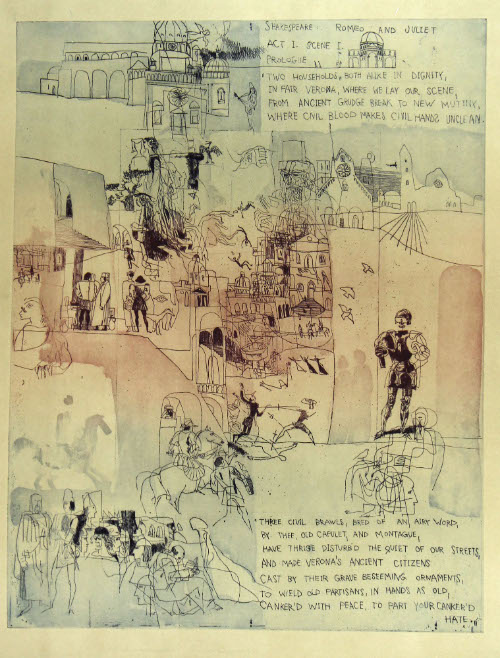 SHAKESPEARE: ROMEO AND JULIET
ACT I. SCENE I.
PROLOGUE
TWO HOUSEHOLDS, BOTH ALIKE IN DIGNITY,
IN FAIR VERONA, WHERE WE LAY OUR SCENE,
FROM ANCIENT GRUDGE BREAK TO NEW MUTINY,
WHERE CIVIL BLOOD MAKES CIVIL HANDS UNCLEAN.
THREE CIVIL BRAWLS, BRED OF AN AIRY WORD,
BY THEE, OLD CAPULET, AND MONTAGUE,
HAVE THRICE DISTURB'D THE QUIET OF OUR STREETS,
AND MADE VERONA'S ANCIENT CITIZENS
CAST BY THEIR GRAVE BESEEMING ORNAMENTS,
TO WIELD OLD PARTISANS, IN HANDS AS OLD,
CANKER'D WITH PEACE, TO PART YOUR CANKER'D
HATE.